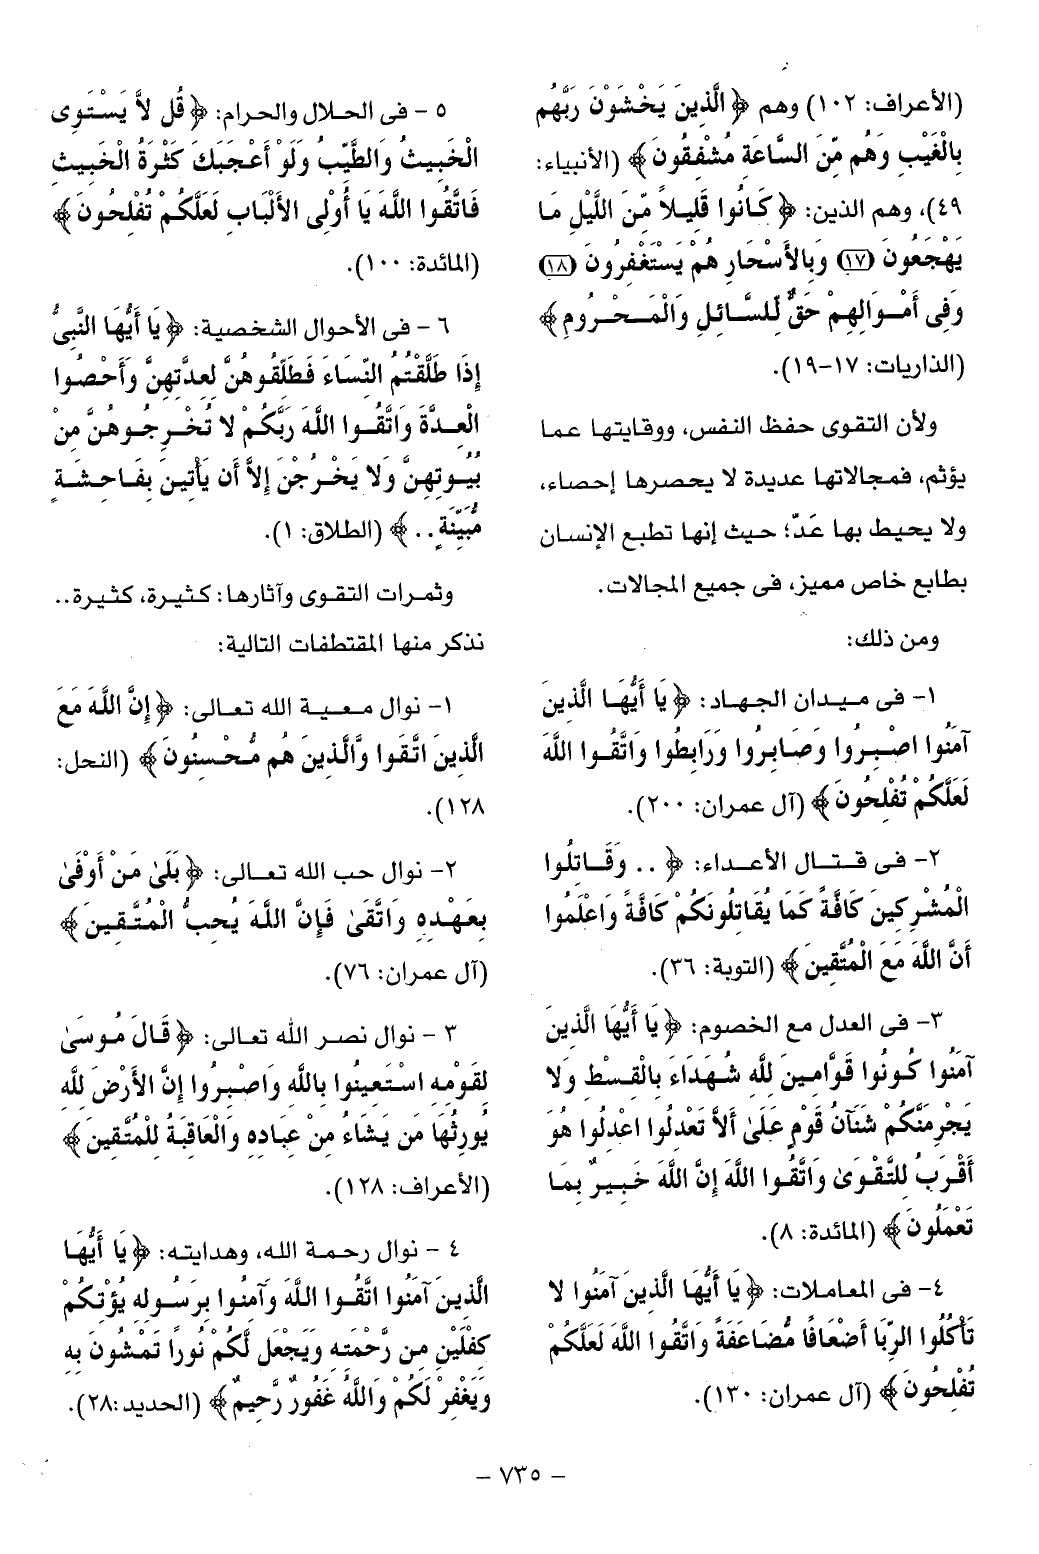 (الأعراف: ١٠٢) وهم ﴿ الَّذِينَ يَخْشَوْنَ رَبَّهُم
بِالْغَيْبِ وَهُم مِّنَ السَّاعَةِ مُشْفِقُونَ ﴾ (الأنبياء:
٤٩)، وهم الذين: ﴿ كَانُوا قَلِيلاً مِّنَ اللَّيْلِ مَا
يَهْجَعُونَ (١٧) وَبِالأَسْحَارِ هُمْ يَسْتَغْفِرُونَ (١٨)
وَفِى أَمْوَالِهِمْ حَقٌّ لِّلسَّائِلِ وَالْمَحْرُومِ ﴾
(الذاريات: ١٧-١٩).
ولأن التقوى حفظ النفس، ووقايتها عما
يؤثم، فمجالاتها عديدة لا يحصرها إحصاء،
ولا يحيط بها عَدّ؛ حيث إنها تطبع الإنسان
بطابع خاص مميز، فى جميع المجالات.
ومن ذلك:
١- فى ميدان الجهاد: ﴿ يَا أَيُّهَا الَّذِينَ
آمَنُوا اصْبِرُوا وَصَابِرُوا وَرَابِطُوا وَاتَّقُوا اللَّهَ
لَعَلَّكُمْ تُفْلِحُونَ ﴾ (آل عمران: ٢٠٠).
٢- فى قتال الأعداء: ﴿ .. وَقَاتِلُوا
الْمُشْرِكِينَ كَافَّةً كَمَا يُقَاتِلُونَكُمْ كَافَّةً وَاعْلَمُوا
أَنَّ اللَّهَ مَعَ الْمُتَّقِينَ ﴾ (التوبة: ٣٦).
٣- فى العدل مع الخصوم: ﴿ يَا أَيُّهَا الَّذِينَ
آمَنُوا كُونُوا قَوَّامِينَ لِلَّهِ شُهَدَاءَ بِالْقِسْطِ وَلا
يَجْرِمَنَّكُمْ شَنَآنُ قَوْمٍ عَلَىٰ أَلاَّ تَعْدِلُوا اعْدِلُوا هُوَ
أَقْرَبُ لِلتَّقْوَىٰ وَاتَّقُوا اللَّهَ إِنَّ اللَّهَ خَبِيرٌ بِمَا
تَعْمَلُونَ ﴾ (المائدة: ٨).
٤- فى المعاملات: ﴿ يَا أَيُّهَا الَّذِينَ آمَنُوا لا
تَأْكُلُوا الرِّبَا أَضْعَافًا مُّضَاعَفَةً وَاتَّقُوا اللَّهَ لَعَلَّكُمْ
تُفْلِحُونَ ﴾ (آل عمران: ١٣٠).
٥ - فى الحلال والحرام: ﴿ قُل لاَّ يَسْتَوِى
الْخَبِيثُ وَالطَّيِّبُ وَلَوْ أَعْجَبَكَ كَثْرَةُ الْخَبِيثِ
فَاتَّقُوا اللَّهَ يَا أُولِى الأَلْبَابِ لَعَلَّكُمْ تُفْلِحُونَ ﴾
(المائدة: ١٠٠).
٦ - فى الأحوال الشخصية: ﴿ يَا أَيُّهَا النَّبِىُّ
إِذَا طَلَّقْتُمُ النِّسَاءَ فَطَلِّقُوهُنَّ لِعِدَّتِهِنَّ وَأَحْصُوا
الْعِدَّةَ وَاتَّقُوا اللَّهَ رَبَّكُمْ لا تُخْرِجُوهُنَّ مِنْ
بُيُوتِهِنَّ وَلا يَخْرُجْنَ إِلاَّ أَن يَأْتِينَ بِفَاحِشَةٍ
مُّبَيِّنَةٍ .. ﴾ (الطلاق: ١).
وثمرات التقوى وآثارها: كثيرة، كثيرة..
نذكر منها المقتطفات التالية:
١- نوال معية الله تعالى: ﴿ إِنَّ اللَّهَ مَعَ
الَّذِينَ اتَّقَوا وَّالَّذِينَ هُم مُّحْسِنُونَ ﴾ (النحل:
١٢٨).
٢- نوال حب الله تعالى: ﴿ بَلَىٰ مَنْ أَوْفَىٰ
بِعَهْدِهِ وَاتَّقَىٰ فَإِنَّ اللَّهَ يُحِبُّ الْمُتَّقِينَ ﴾
(آل عمران: ٧٦).
٣ - نوال نصر الله تعالى: ﴿ قَالَ مُوسَىٰ
لِقَوْمِهِ اسْتَعِينُوا بِاللَّهِ وَاصْبِرُوا إِنَّ الأَرْضَ لِلَّهِ
يُورِثُهَا مَن يَشَاءُ مِنْ عِبَادِهِ وَالْعَاقِبَةُ لِلْمُتَّقِينَ ﴾
(الأعراف: ١٢٨).
٤ - نوال رحمة الله، وهدايته: ﴿ يَا أَيُّهَا
الَّذِينَ آمَنُوا اتَّقُوا اللَّهَ وَآمِنُوا بِرَسُولِهِ يُؤْتِكُمْ
كِفْلَيْنِ مِن رَّحْمَتِهِ وَيَجْعَل لَّكُمْ نُورًا تَمْشُونَ بِهِ
وَيَغْفِرْ لَكُمْ وَاللَّهُ غَفُورٌ رَّحِيمٌ ﴾ (الحديد :٢٨).
- ٧٣٥ -